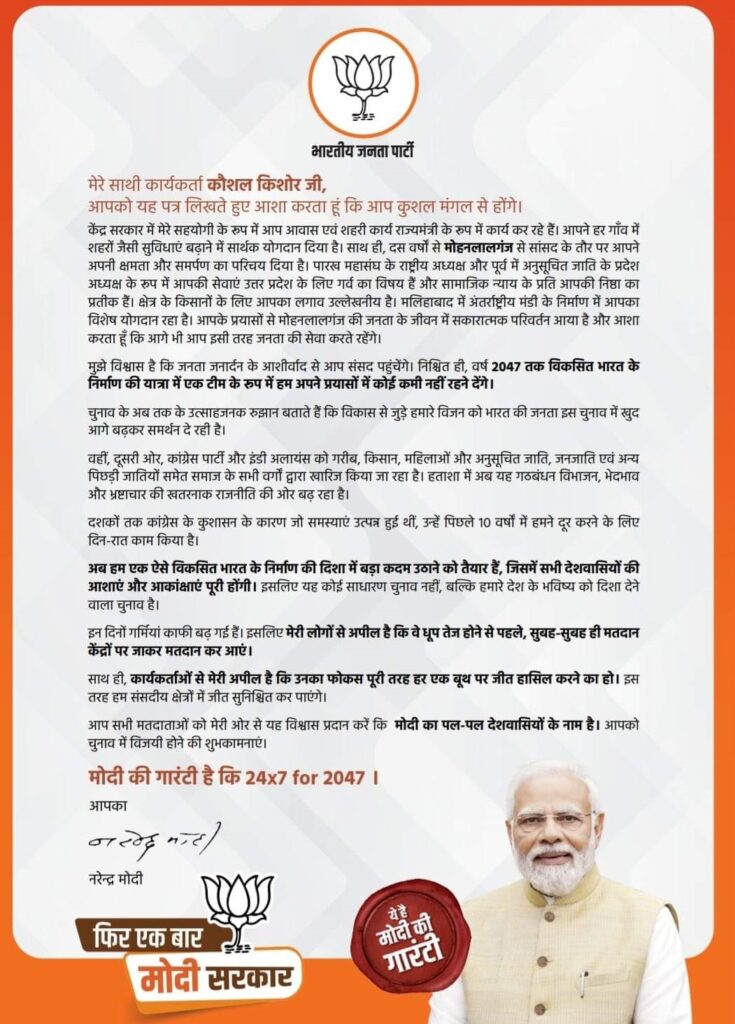 भारतीय जनता पार्टी
मेरे साथी कार्यकर्ता कौशल किशोर जी,
आपको यह पत्र लिखते हुए आशा करता हूं कि आप कुशल मंगल से होंगे।
केंद्र सरकार में मेरे सहयोगी के रूप में आप आवास एवं शहरी कार्य राज्यमंत्री के रूप में कार्य कर रहे हैं। आपने हर गाँव में
शहरों जैसी सुविधाएं बढ़ाने में सार्थक योगदान दिया है। साथ ही, दस वर्षों से मोहनलालगंज से सांसद के तौर पर आपने
अपनी क्षमता और समर्पण का परिचय दिया है। पारख महासंघ के राष्ट्रीय अध्यक्ष और पूर्व में अनुसूचित जाति के प्रदेश
अध्यक्ष के रूप में आपकी सेवाएं उत्तर प्रदेश के लिए गर्व का विषय हैं और सामाजिक न्याय के प्रति आपकी निष्ठा का
प्रतीक हैं। क्षेत्र के किसानों के लिए आपका लगाव उल्लेखनीय है। मलिहाबाद में अंतर्राष्ट्रीय मंडी के निर्माण में आपका
विशेष योगदान रहा है। आपके प्रयासों से मोहनलालगंज की जनता के जीवन में सकारात्मक परिवर्तन आया है और आशा
करता हूँ कि आगे भी आप इसी तरह जनता की सेवा करते रहेंगे।
मुझे विश्वास है कि जनता जनार्दन के आशीर्वाद से आप संसद पहुंचेंगे। निश्चित ही, वर्ष 2047 तक विकसित भारत के
निर्माण की यात्रा में एक टीम के रूप में हम अपने प्रयासों में कोई कमी नहीं रहने देंगे।
चुनाव के अब तक के उत्साहजनक रुझान बताते हैं कि विकास से जुड़े हमारे विजन को भारत की जनता इस चुनाव में खुद
आगे बढ़कर समर्थन दे रही है।
वहीं, दूसरी ओर, कांग्रेस पार्टी और इंडी अलायंस को गरीब, किसान, महिलाओं और अनुसूचित जाति, जनजाति एवं अन्य
पिछड़ी जातियों समेत समाज के सभी वर्गों द्वारा खारिज किया जा रहा है। हताशा में अब यह गठबंधन विभाजन, भेदभाव
और भ्रष्टाचार की खतरनाक राजनीति की ओर बढ़ रहा है।
दशकों तक कांग्रेस के कुशासन के कारण जो समस्याएं उत्पन्न हुई थीं, उन्हें पिछले 10 वर्षों में हमने दूर करने के लिए
दिन-रात काम किया है।
अब हम एक ऐसे विकसित भारत के निर्माण की दिशा में बड़ा कदम उठाने को तैयार हैं, जिसमें सभी देशवासियों की
आशाएं और आकांक्षाएं पूरी होंगी। इसलिए यह कोई साधारण चुनाव नहीं, बल्कि हमारे देश के भविष्य को दिशा देने
वाला चुनाव है।
इन दिनों गर्मियां काफी बढ़ गई हैं। इसलिए मेरी लोगों से अपील है कि वे धूप तेज होने से पहले, सुबह-सुबह ही मतदान
केंद्रों पर जाकर मतदान कर आएं।
साथ ही, कार्यकर्ताओं से मेरी अपील है कि उनका फोकस पूरी तरह हर एक बूथ पर जीत हासिल करने का हो। इस
तरह हम संसदीय क्षेत्रों में जीत सुनिश्चित कर पाएंगे।
आप सभी मतदाताओं को मेरी ओर से यह विश्वास प्रदान करें कि मोदी का पल-पल देशवासियों के नाम है। आपको
चुनाव में विजयी होने की शुभकामनाएं।
मोदी की गारंटी है कि 24x7 for 2047 ।
आपका
नरेन्द्र मोदी
नरेन्द्र मोदी
फिर एक बार
मोदी सरकार
ये है
मोदी की
गारंटी